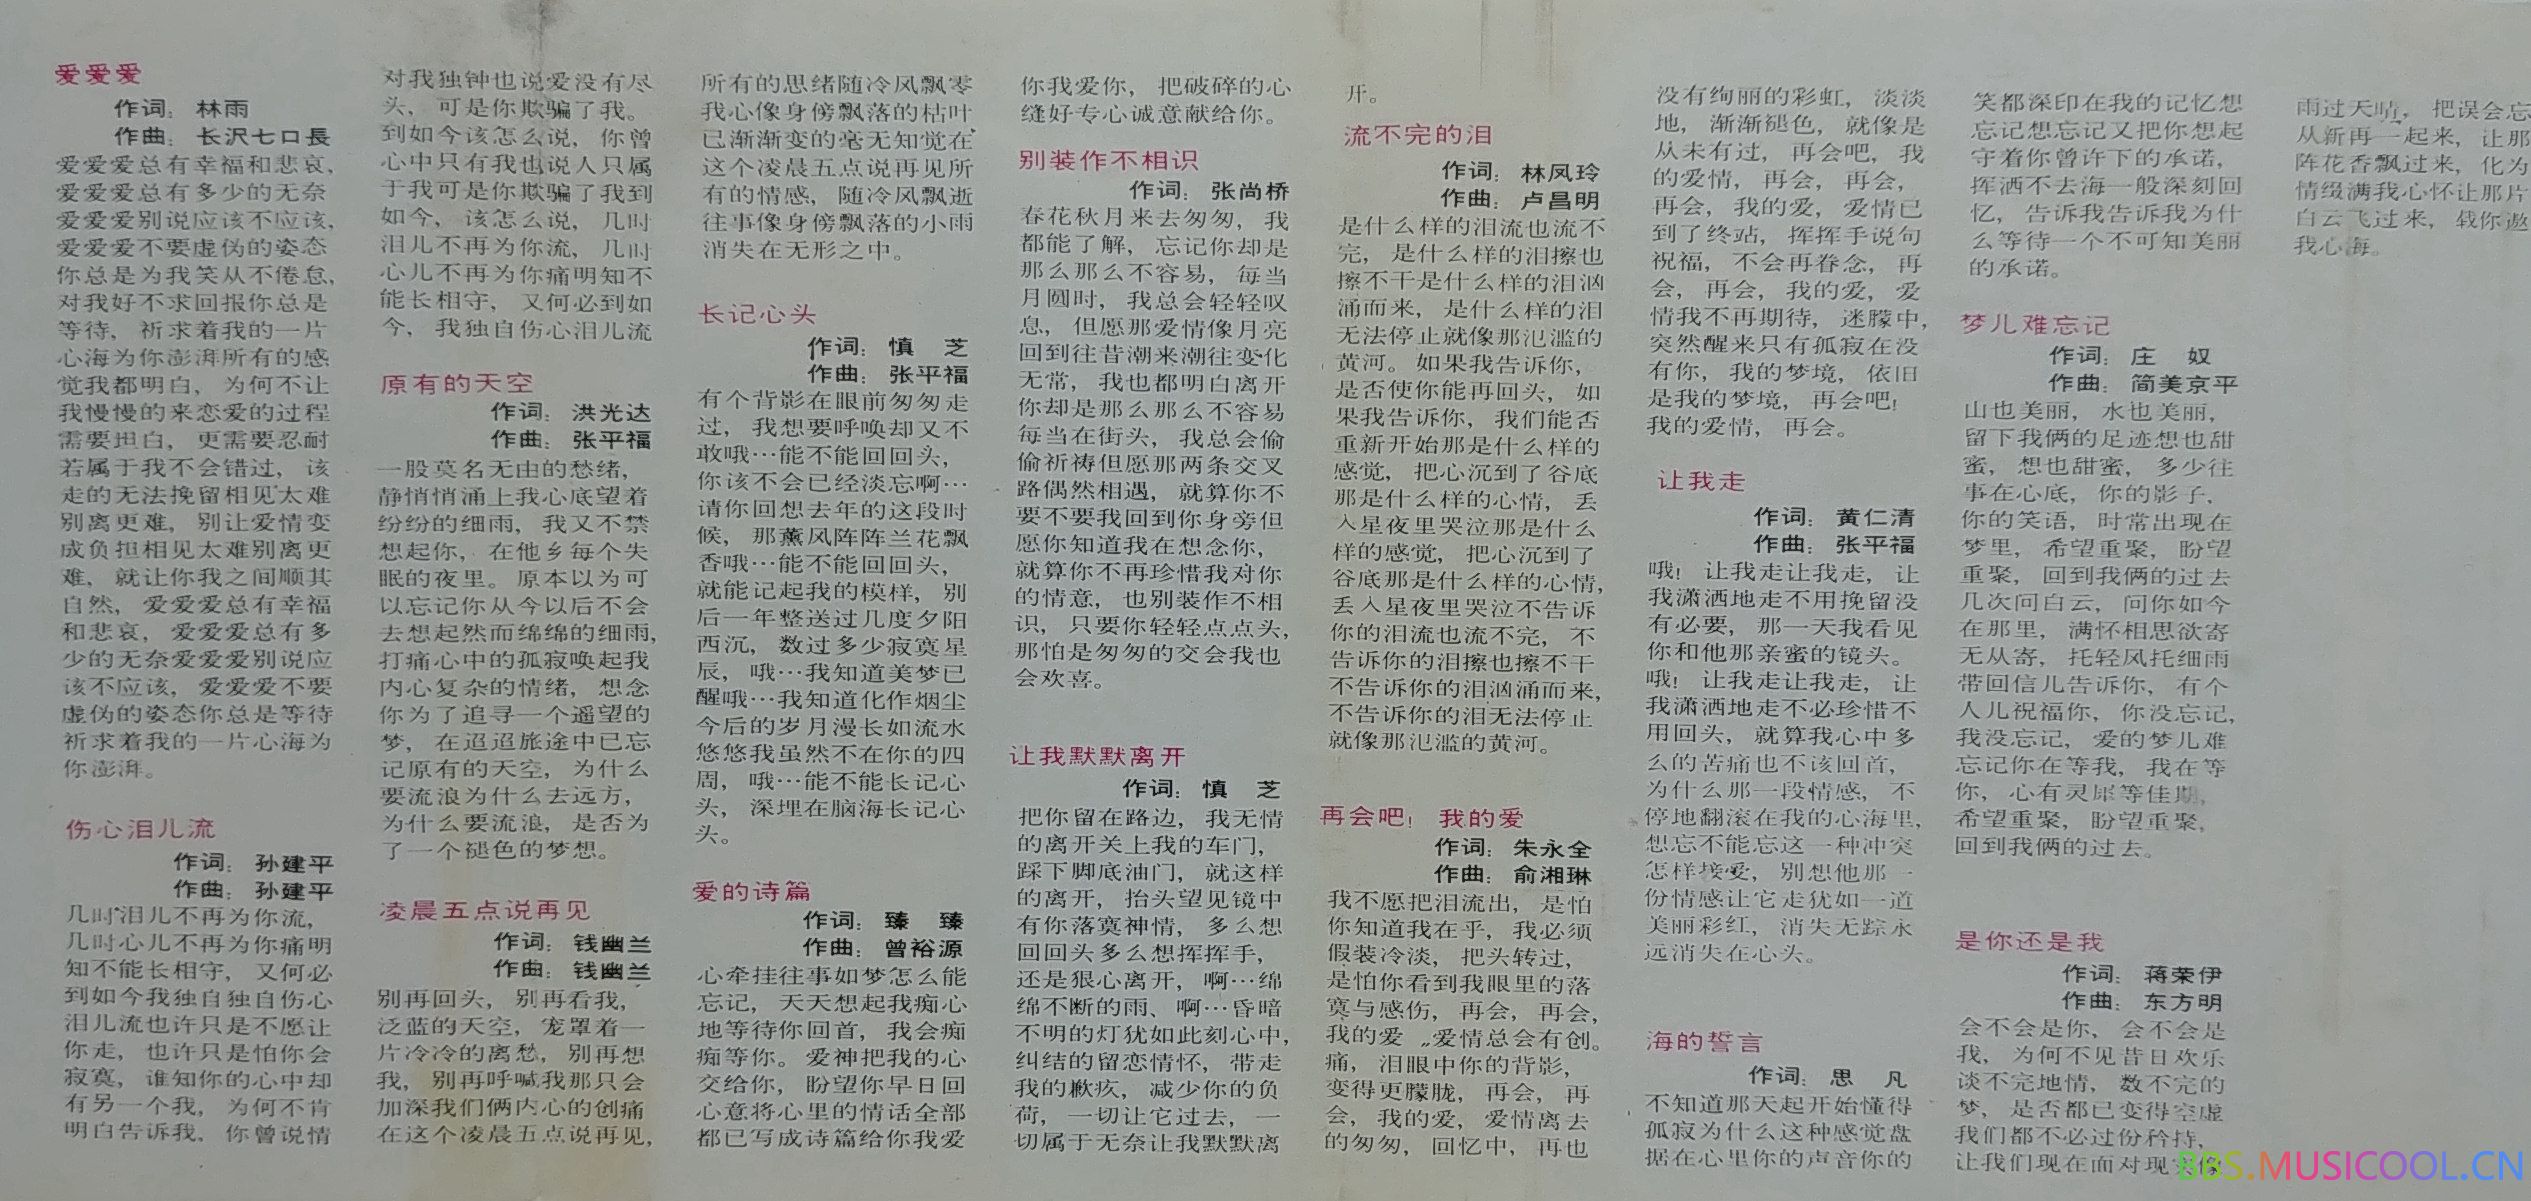 爱爱爱
作词：林雨
作曲：长沢七口長
爱爱爱总有幸福和悲哀，
爱爱爱总有多少的无奈
爱爱爱别说应该不应该，
爱爱爱不要虚伪的姿态
你总是为我笑从不倦怠，
对我好不求回报你总是
等待，祈求着我的一片
心海为你澎湃所有的感
觉我都明白，为何不让
我慢慢的来恋爱的过程
需要坦白，更需要忍耐
若属于我不会错过，该
走的无法挽留相见太难
别离更难，别让爱情变
成负担相见太难别离更
难，就让你我之间顺其
自然，爱爱爱总有幸福
和悲哀，爱爱爱总有多
少的无奈爱爱爱别说应
该不应该，爱爱爱不要
虚伪的姿态你总是等待
祈求着我的一片心海为
你澎湃。
伤心泪儿流
作词：孙建平
作曲：孙建平
几时泪儿不再为你流，
几时心儿不再为你痛明
知不能长相守，又何必
到如今我独自独自伤心
泪儿流也许只是不愿让
你走，也许只是怕你会
寂寞，谁知你的心中却
有另一个我，为何不肯
明白告诉我，你曾说情
对我独钟也说爱没有尽
头，可是你欺骗了我。
到如今该怎么说，你曾
心中只有我也说人只属
于我可是你欺骗了我到
如今，该怎么说，几时
泪儿不再为你流，几时
心儿不再为你痛明知不
能长相守，又何必到如
今，我独自伤心泪儿流
原有的天空
作词：洪光达
作曲：张平福
一股莫名无由的愁绪，
静悄悄涌上我心底望着
纷纷的细雨，我又不禁
想起你，在他乡每个失
眠的夜里。原本以为可
以忘记你从今以后不会
去想起然而绵绵的细雨，
打痛心中的孤寂唤起我
内心复杂的情绪，想念
你为了追寻一个遥望的
梦，在迢迢旅途中已忘
记原有的天空，为什么
要流浪为什么去远方，
为什么要流浪，是否为
了一个褪色的梦想。
凌晨五点说再见
作词：钱幽兰
作曲：钱幽兰
别再回头，别再看我，
泛蓝的天空，宠罩着一
片冷冷的离愁，别再想
我，别再呼喊我那只会
加深我们俩内心的创痛
在这个凌晨五点说再见，
所有的思绪随冷风飘零
我心像身傍飘落的枯叶
已渐渐变的毫无知觉在
这个凌晨五点说再见所
有的情感，随冷风飘逝
往事像身傍飘落的小雨
消失在无形之中。
长记心头
作词：慎　芝
作曲：张平福
有个背影在眼前匆匆走
过，我想要呼唤却又不
敢哦…能不能回回头，
你该不会已经淡忘啊…
请你回想去年的这段时
候，那薰风阵阵兰花飘
香哦…能不能回回头，
就能记起我的模样，别
后一年整送过几度夕阳
西沉，数过多少寂寞星
辰，哦…我知道美梦已
醒哦…我知道化作烟尘
今后的岁月漫长如流水
悠悠我虽然不在你的四
周，哦…能不能长记心
头，深埋在脑海长记心
头。
爱的诗篇
作词：臻　臻
作曲：曾裕源
心牵挂往事如梦怎么能
忘记，天天想起我痴心
地等待你回首，我会痴
痴等你。爱神把我的心
交给你，盼望你早日回
心意将心里的情话全部
都已写成诗篇给你我爱
你我爱你，把破碎的心
缝好专心诚意献给你。
别装作不相识
作词：张尚桥
春花秋月来去匆匆，我
都能了解，忘记你却是
那么那么不容易，每当
月圆时，我总会轻轻叹
息，但愿那爱情像月亮
回到往昔潮来潮往变化
无常，我也都明白离开
你却是那么那么不容易
每当在街头，我总会偷
偷祈祷但愿那两条交叉
路偶然相遇，就算你不
要不要我回到你身旁但
愿你知道我在想念你，
就算你不再珍惜我对你
的情意，也别装作不相
识，只要你轻轻点点头，
那怕是匆匆的交会我也
会欢喜。
让我默默离开
作词：慎　芝
把你留在路边，我无情
的离开关上我的车门，
踩下脚底油门，就这样
的离开，抬头望见镜中
有你落寞神情，多么想
回回头多么想挥挥手，
还是狠心离开，啊…绵
绵不断的雨、啊…昏暗
不明的灯犹如此刻心中，
纠结的留恋情怀，带走
我的歉疚，减少你的负
荷，一切让它过去，一
切属于无奈让我默默离
开。
流不完的泪
作词：林凤玲
作曲：卢昌明
是什么样的泪流也流不
完，是什么样的泪擦也
擦不干是什么样的泪汹
涌而来，是什么样的泪
无法停止就像那氾滥的
黄河。如果我告诉你，
是否使你能再回头，如
果我告诉你，我们能否
重新开始那是什么样的
感觉，把心沉到了谷底
那是什么样的心情，丢
入星夜里哭泣那是什么
样的感觉，把心沉到了
谷底那是什么样的心情，
丢入星夜里哭泣不告诉
你的泪流也流不完，不
告诉你的泪擦也擦不干
不告诉你的泪汹涌而来，
不告诉你的泪无法停止
就像那氾滥的黄河。
再会吧！我的爱
作词：朱永全
作曲：俞湘琳
我不愿把泪流出，是怕
你知道我在乎，我必须
假装冷淡，把头转过，
是怕你看到我眼里的落
寞与感伤，再会，再会，
我的爱 〃爱情总会有创。
痛，泪眼中你的背影，
变得更朦胧，再会，再
会，我的爱，爱情离去
的匆匆，回忆中，再也
没有绚丽的彩虹，淡淡
地，渐渐褪色，就像是
从未有过，再会吧，我
的爱情，再会，再会，
再会，我的爱，爱情已
到了终站，挥挥手说句
祝福，不会再眷念，再
会，再会，我的爱，爱
情我不再期待，迷朦中，
突然醒来只有孤寂在没
有你，我的梦境，依旧
是我的梦境，再会吧！
我的爱情，再会。
让我走
作词：黄仁清
作曲：张平福
哦！让我走让我走，让
我潇洒地走不用挽留没
有必要，那一天我看见
你和他那亲蜜的镜头。
哦！让我走让我走，让
我潇洒地走不必珍惜不
用回头，就算我心中多
么的苦痛也不该回首，
为什么那一段情感，不
停地翻滚在我的心海里，
想忘不能忘这一种冲突
怎样接受，别想他那一
份情感让它走犹如一道
美丽彩红，消失无踪永
远消失在心头。
海的誓言
作词：思　凡
不知道那天起开始懂得
孤寂为什么这种感觉盘
据在心里你的声音你的
笑都深印在我的记忆想
忘记想忘记又把你想起
守着你曾许下的承诺，
挥洒不去海一般深刻回
忆，告诉我告诉我为什
么等待一个不可知美丽
的承诺。
梦儿难忘记
作词：庄　奴
作曲：简美京平
山也美丽，水也美丽，
留下我俩的足迹想也甜
蜜，想也甜蜜，多少往
事在心底，你的影子，
你的笑语，时常出现在
梦里，希望重聚，盼望
重聚，回到我俩的过去
几次问白云，问你如今
在那里，满怀相思欲寄
无从寄，托轻风托细雨
带回信儿告诉你，有个
人儿祝福你，你没忘记，
我没忘记，爱的梦儿难
忘记你在等我，我在等
你，心有灵犀等佳期，
希望重聚，盼望重聚，
回到我俩的过去。
是你还是我
作词：蒋荣伊
作曲：东方明
会不会是你，会不会是
我，为何不见昔日欢乐
谈不完地情，数不完的
梦，是否都已变得空虚
我们都不必过份矜持，
让我们现在面对现
雨过天晴，把误会忘
从新再一起来，让那
阵花香飘过来，化为
情缀满我心怀让那片
白云飞过来，载你遨
我心海。
BBS.MUSICOOL.CN